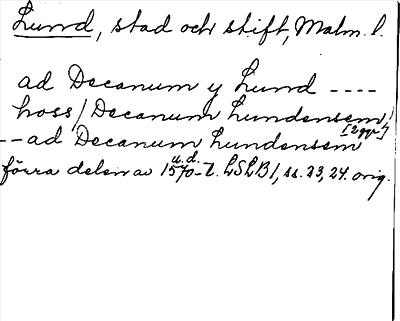 Lund, stad och stift, Malm. l.
ad Decanum y Lund ----
hoss/Decanum Lundensem/
[2 ggr]
--ad Decanum Lundensem
u.d.
förra delen av 1570-t. LSLB1, ss. 23, 24. orig.